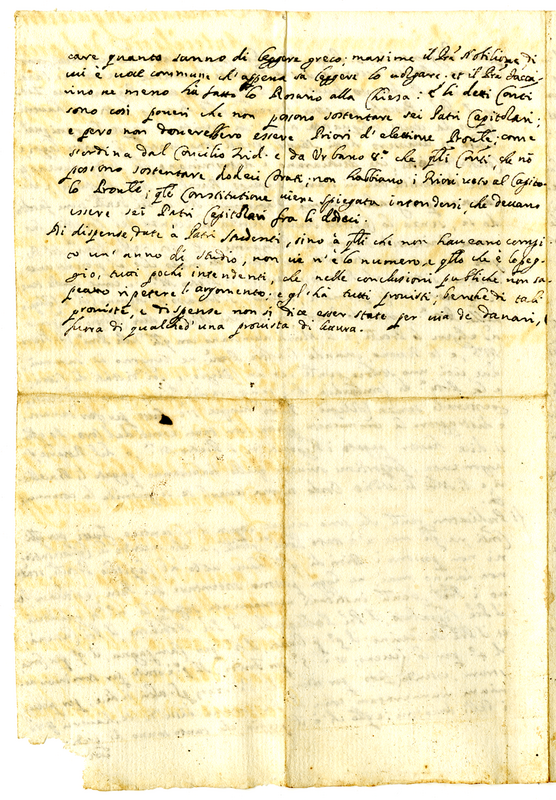 care quanto sanno di leggere greco; massime il Prẽ Notilione di
cui è voce commune ch'appena sà leggere lo volgare. et il Prẽ
vino ne meno hà fatto lo Rosario alla Chiesa. E li detti Conti
sono così poveri che non possono sostentare sei Patri Capitolari;
e però non doverebbero essere Priori d'elettione Provle; come
s'ordina dal Concilio Trid. e da Urbano 8.º che qlli Conti, che nõ
possono sostentare dodeci Frati, non habbiano i Priori voto al Capito-
lo Provle; qle Constitutione viene spiegata intendersi, che devano
essere sei Patri Capitolari fra li dodeci.
Di dispense date a Patri studenti, sino à qlli che non haveano compi-
to un'anno di studio, non ve n'è lo numero, e qllo che è peg-
gio, tutti pochi intendenti, che nelle conclusioni publiche non sa-
peano ripetere l'argomento. e gl'hà tutti provisti, benche di tali
proviste, e dispense non si dice esser state per via de danari,
fuora di qualched'una provista di